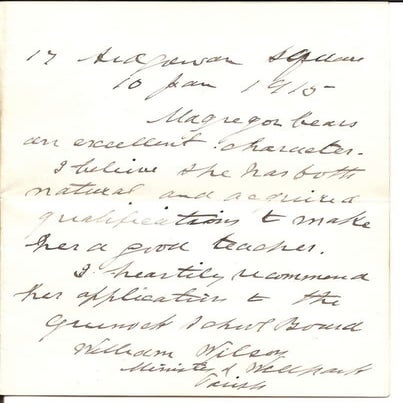 17 Ardgowan Square
10 Jan 1915
Magregor bears
an excellent character.
I believe she has both
natural and acquired
qualifications to make
her a good teacher.
I heartily recommend
her application to the
Greenock School Board
William Wilson
Minister of Wellpark
Parish